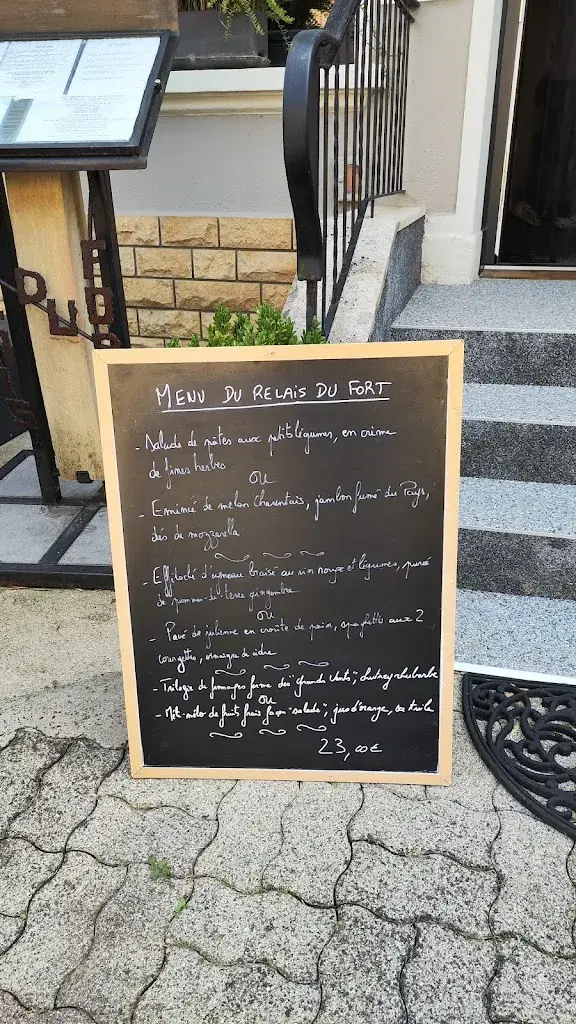 DU
FOR
MENU DU RELAIS DU FORT
- Salade de pâtes aux petits légumes, en crème
de fines herbes
OU
- Emincé de melon Charentais, jambon fumé du Pays,
dés de mozzarella
- Effiloché d'agneau braisé au vin rouge et légumes, purée
de pommes de terre gingembre
OU
- Pavé de julienne en croûte de pain, spaghettis aux 2
courgettes, vinaigre de cidre
- Trilogie de fromages ferme des "Grands Vents", chutney rhubarbe
OU
- Méli-mélo de fruits frais façon "salade", jus d'orange, tuile
23,00€